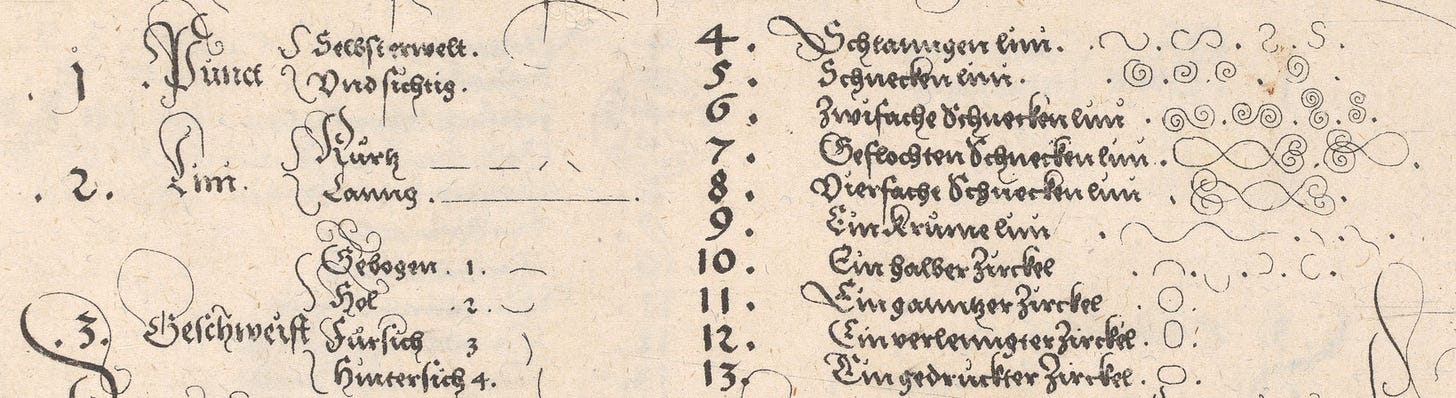 . 1 . Punct Selbst erwelt.
Vnd sichtig.
. 2. Lini. Kurtz
Lanng.
. 3. Geschweift Gebogen . 1.
Hol . 2.
Fursich 3
Hintersich 4.
4. Schlanngen lini.
5. Schnecken lini.
6. Zwifache Schnecken lini
7. Geflochten Schnecken lini.
8. Vierfache Schnecken lini
9. Ein Krume lini
10. Ein halber Zirckel
11. Ein ganntzer Zirckel
12. Ein verlenngter Zirckel.
13. Ein gedruckter Zirckel.